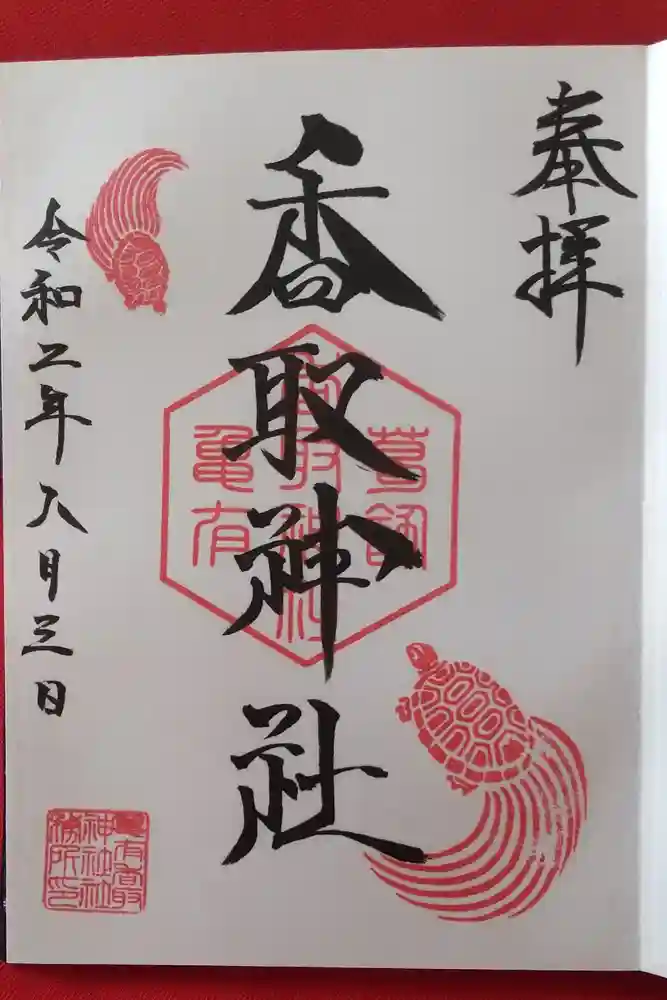 奉拝
香取神社
葛飾
香取神社
亀有
令和二年八月三日
神社社
務所印